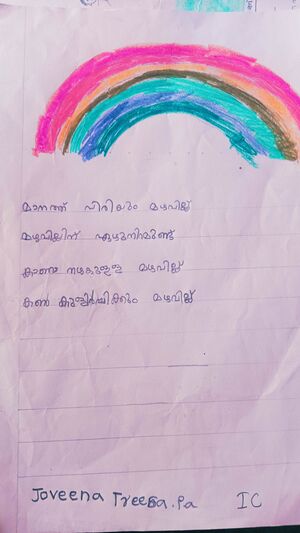 മാനത്ത് വിരിയും മഴവില്ല്
മഴവില്ലിന് ഏഴുനിറമുണ്ട്
കാണാനഴകുള്ള മഴവില്ല്
കൺ കുളിർപ്പിക്കും മഴവില്ല്
Joveena Treesa.Pa IC